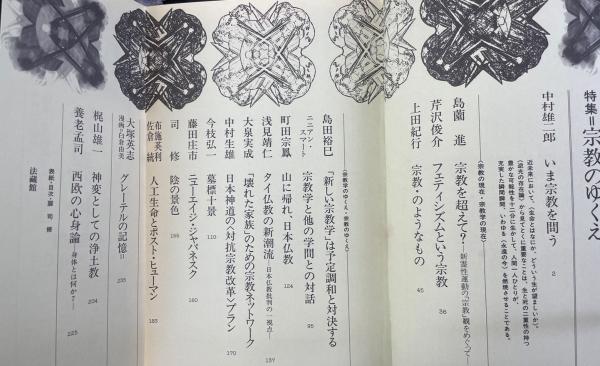 特集=宗教のゆくえ
中村雄二郎 いま宗教を問う 2
近未来において、〈生命とはなにか、どういう生が望ましいか〉
豊かな可能性を十二分に生かして、人間一人ひとりが、
充実した瞬間瞬間、いわゆる〈永遠の今〉を燃焼させることである。
〈宗教の現在・宗教学の現在〉
島薗 進 宗教を超えて?―新霊性運動の「宗教」観をめぐって― 36
芹沢俊介 フェティシズムという宗教
上田紀行 宗教・のようなもの 45
〈宗教学のゆくえ・宗教のゆくえ〉
島田裕巳 「新しい宗教学」は予定調和と対決する
ニニアン・スマート 宗教学と他の学問との対話 95
町田宗鳳 山に帰れ、日本仏教 124
浅見靖仁 タイ仏教の新潮流―日本仏教批判の一視点― 137
大泉実成 「壊れた家族」のための宗教ネットワーク
中村生雄 日本神道の〈対抗宗教改革〉プラン 170
今枝弘一 墓標十景 110
藤田庄市 ニューエイジ・ジャパネスク 160
司 修 陰の景色 195
布施英利
佐倉 統 人工生命とポスト・ヒューマン 185
大塚英志
漫画=白倉由美 グレーテルの記憶Ⅱ 235
梶山雄一 神変としての浄土教 204
養老孟司 西欧の心身論―身体とは何か?― 225
表紙・目次・扉 司 修
法藏館